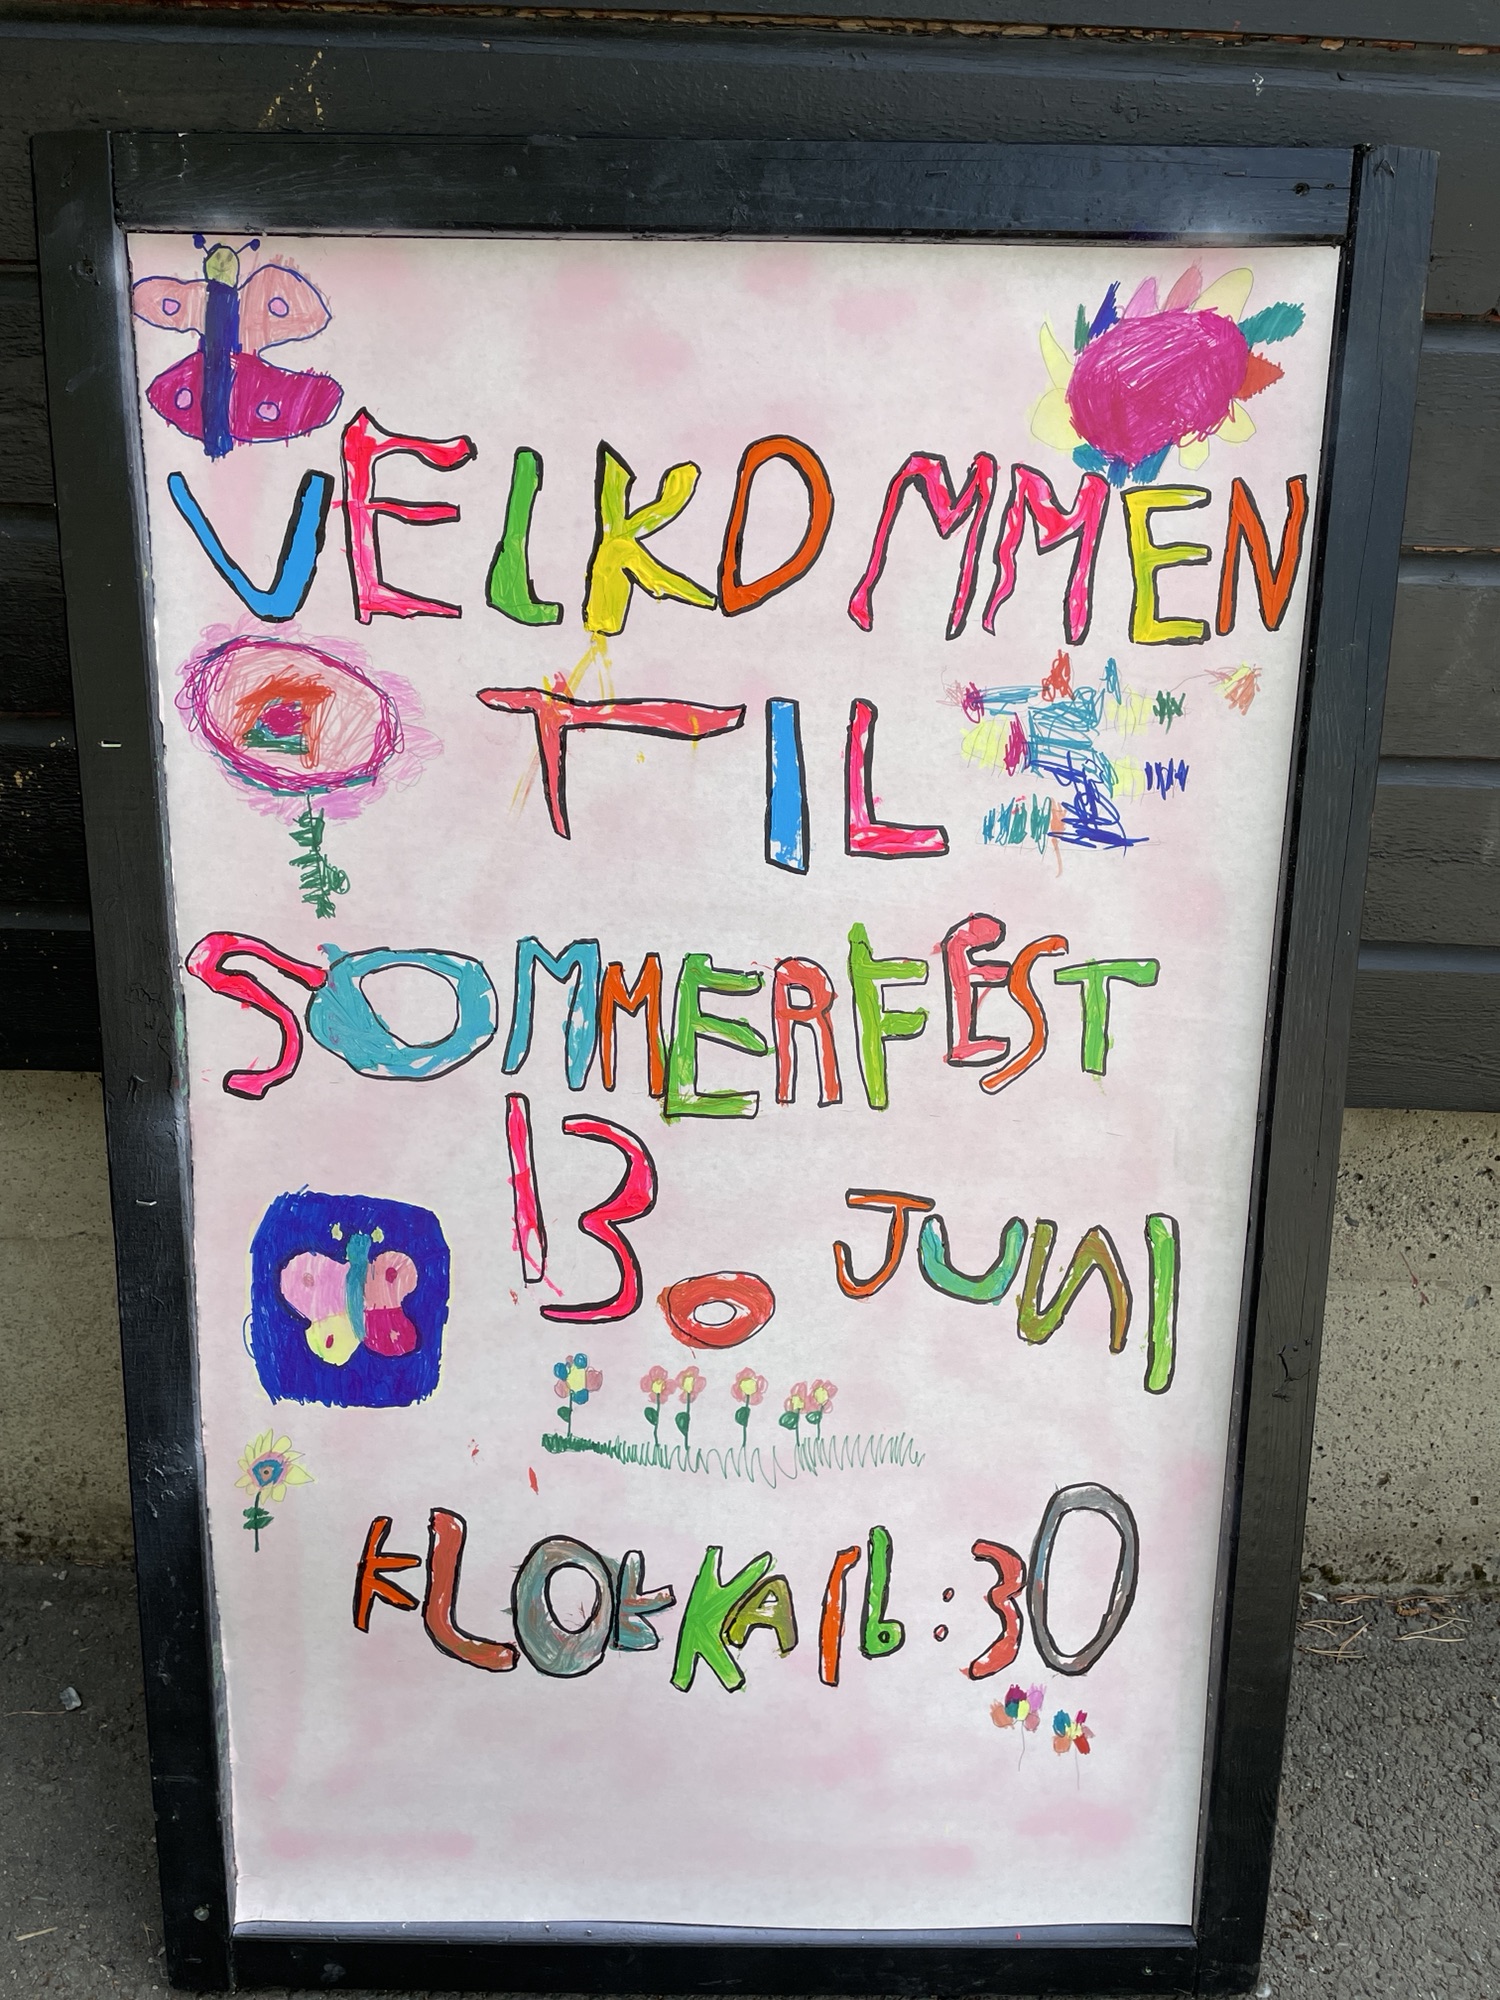 VELKOMMEN
TIL
SOMMERFEST
13. JUNI
KLOKKA 16:30